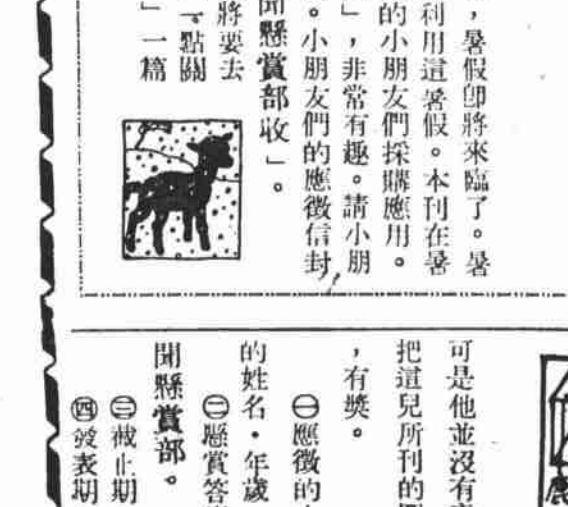 ，暑假即將來臨了。暑
利用這暑假。本刊在暑
的小朋友們採購應用。
」，非常有趣。請小朋
。小朋友們的應徵信封
聞懸賞部收」。
將要去
點關
」一篇
可是他並沒有
把這兒所刊的
，有獎。
㊀應徵的
的姓名・年歲
㊁懸賞答
聞懸賞部。
㊂截止期
㊃發表期